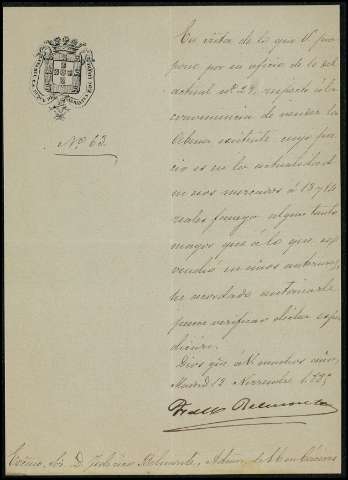 En vista de lo que V. pro-
pone por su oficio de
actual nº 29, respecto á la
conveniencia de vender la
existente cuyo pre-
cio es en la actualidad
en esos mercados á 13 y 14
reales fanega algun tanto
mayor que á lo que se
vendió en años anteriores,
he acordado autorizarle
para verificar dicha espe-
dición.
Dios gue. á V. muchos años,
Madrid 12 Noviembre
Nº 63.
Sr. D. Federico Belmonte, Admor. de